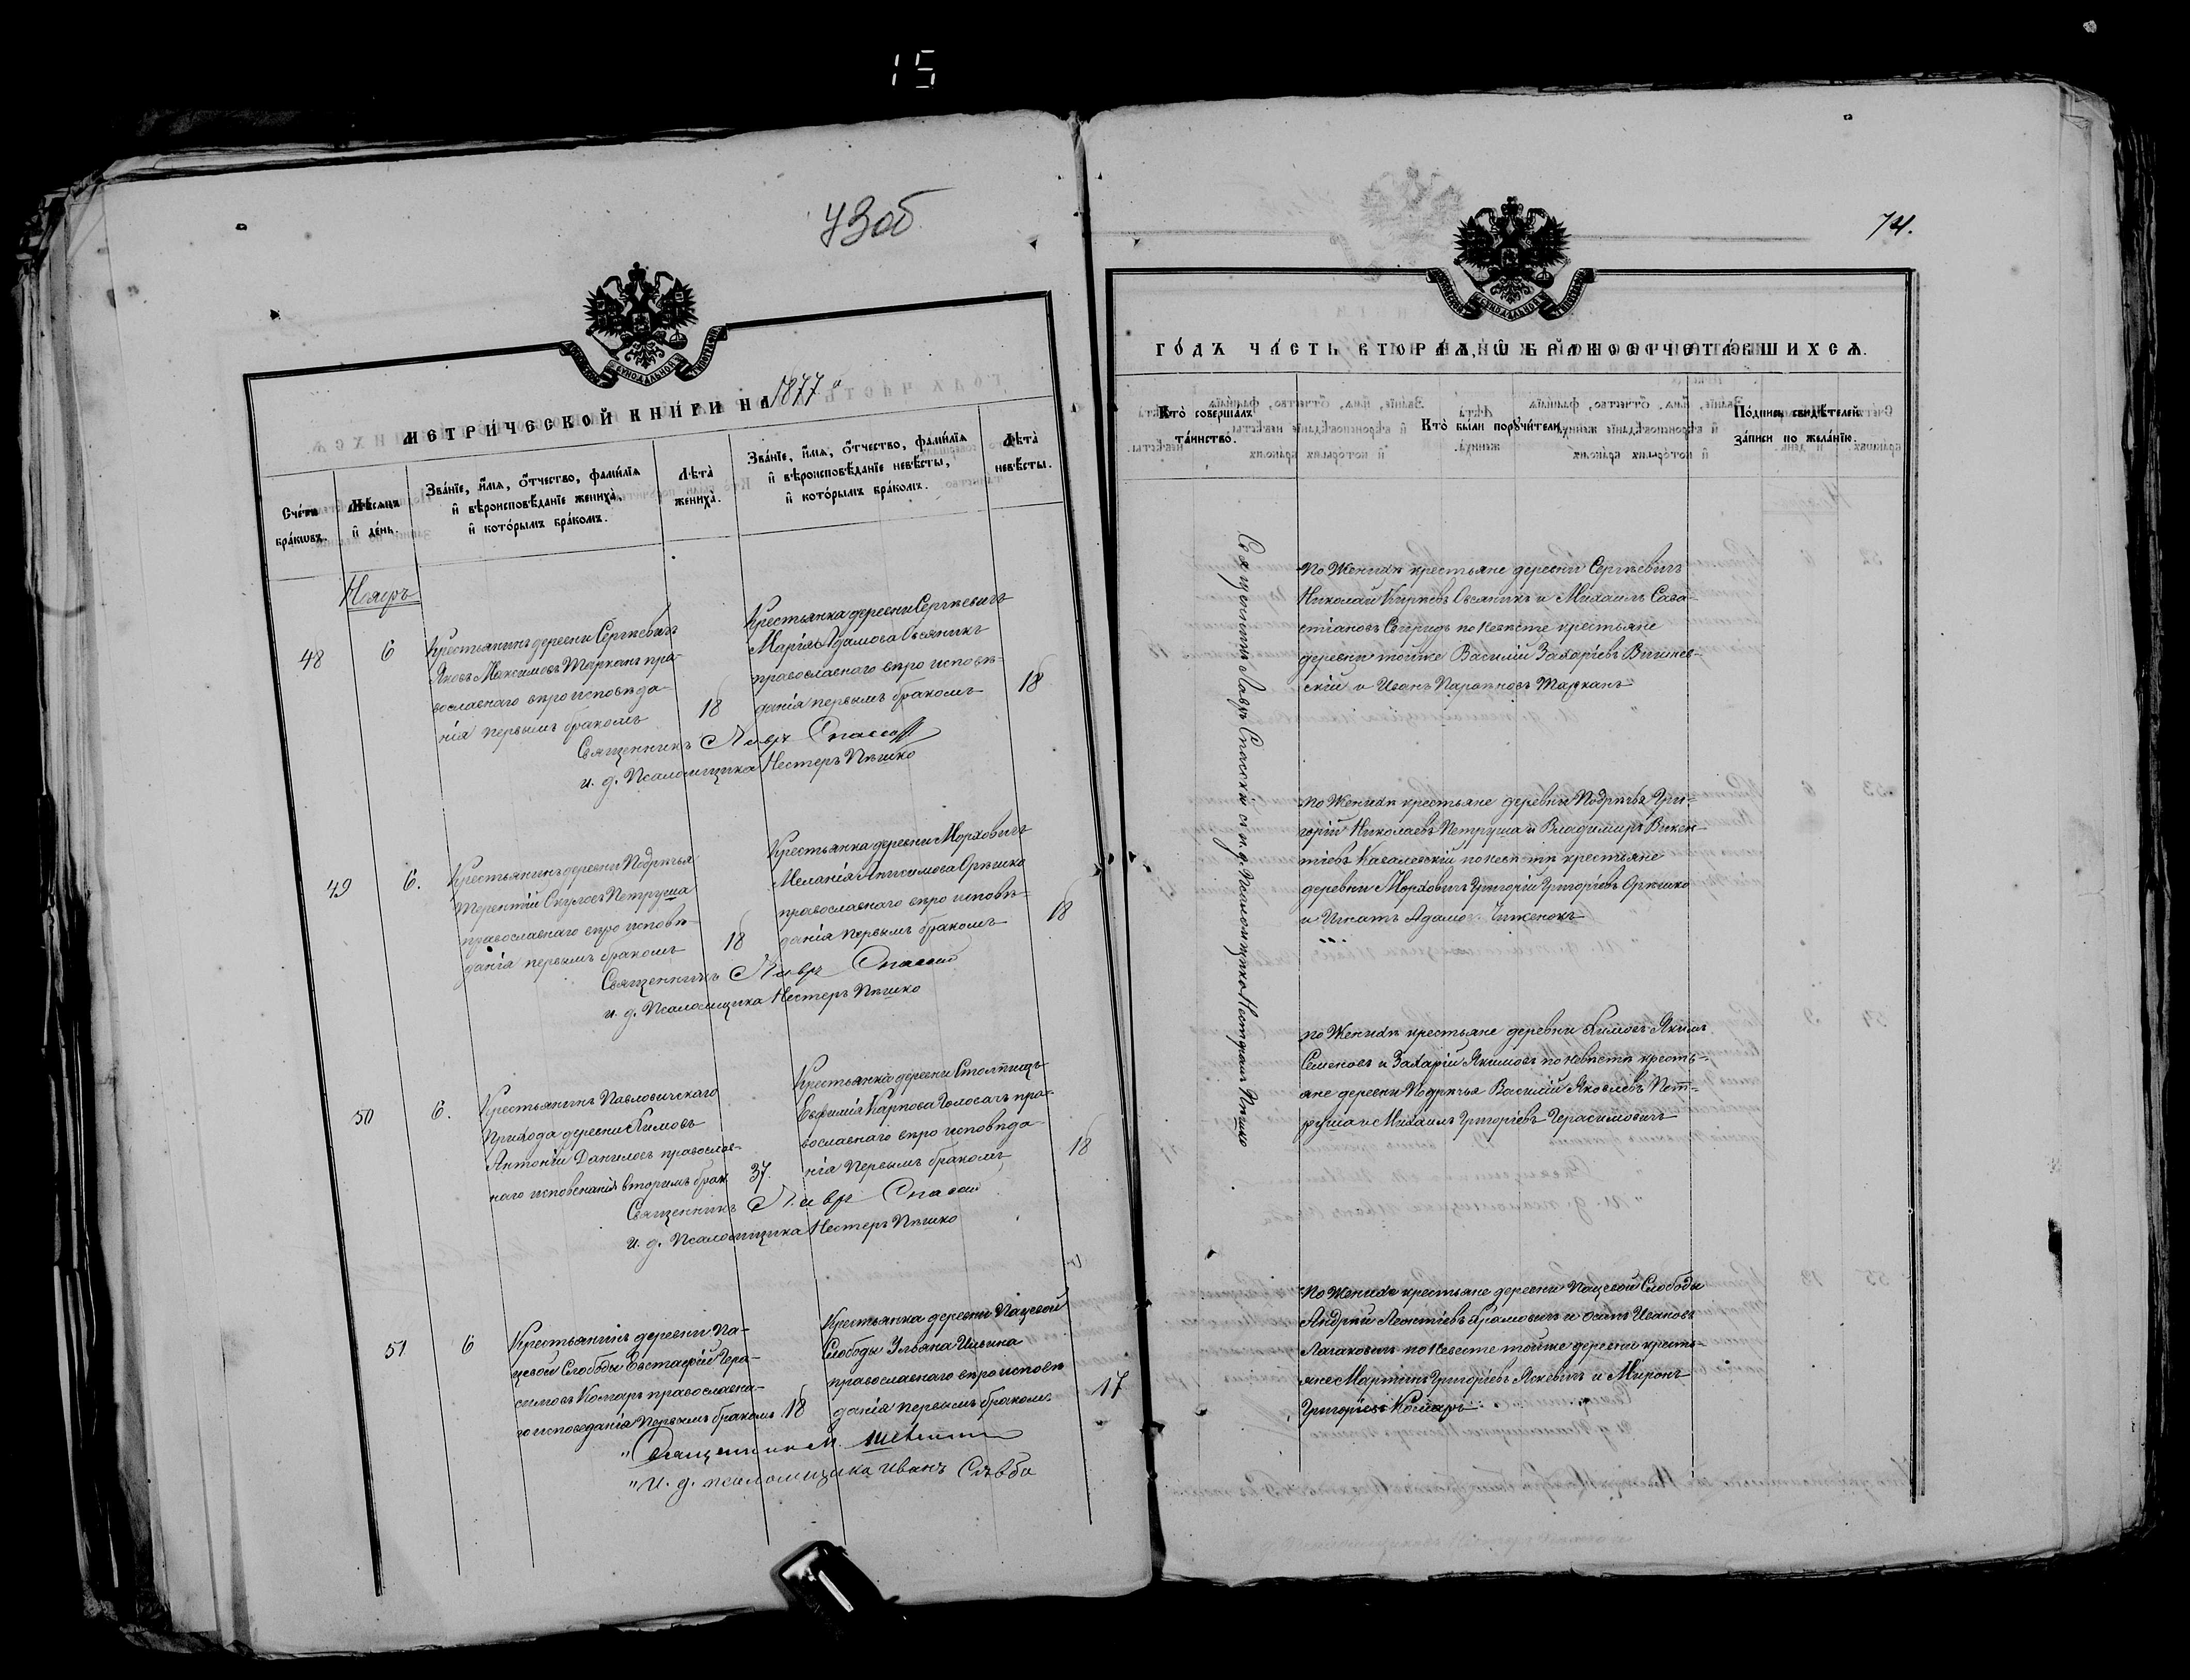 15
73об
МЕТРИЧЕСКОЙ КНИГИ НА 1877й
Счетъ браковъ.
Мѣсяцъ и день.
Званіе, имя, отчество, фамилія и вѣроисповѣданіе жениха, и которымъ бракомъ.
Лѣта жениха.
Званіе, имя, отчество, фамилія и вѣроисповѣданіе невѣсты, и которымъ бракомъ.
Лѣта невѣсты.
Ноябрь
48
6
Крестьянинъ деревни Сергѣевичъ
Яковъ Максимовъ Тарканъ пра-
вославнаго вѣроисповѣда-
нія первымъ бракомъ
18
Крестьянка деревни Сергѣевичъ
Марія Адамова Овсяникъ
православнаго вѣроисповѣ-
данія первымъ бракомъ
18
Священникъ Лавръ Спасскій
и. д. Псаломщика Нестеръ Пѣшко
49
6.
Крестьянинъ деревни Подрѣчья
Терентій Окуловъ Петруша
православнаго вѣроисповѣ-
данія первымъ бракомъ
18
Крестьянка деревни Морховичъ
Меланія Анисимова Орѣшко
православнаго вѣроисповѣ-
данія первымъ бракомъ
18
Священникъ Лавръ Спасскій
и. д. Псаломщика Нестеръ Пѣшко
50
6.
Крестьянинъ Павловичскаго
Прихода деревни Климовъ
Антоній Даниловъ православ-
наго исповеданія вторимъ брак
37.
Крестьянка деревни Столпищъ
Евфимія Карпова Головачъ пра-
вославнаго вѣроисповѣда-
нія первымъ бракомъ
18
Священникъ Лавръ Спасскій
и. д. Псаломщика Нестеръ Пѣшко
51
6
Крестьянинъ деревни Па-
цевой Слободы Евстафій Гера-
симовъ Комаръ православна-
го исповеданія первымъ бракомъ
18
Крестьянка деревни Пацевой
Слободы Ульяна Ильина
православнаго вѣроисповѣ
данія первымъ бракомъ
17
"Священникъ
"И. д. псаломщика Иванъ Слѣвба
74.
ГОДЪ ЧАСТЬ ВТОРАЯ, Ѡ БРАКОСОЧЕТАВШИХСЯ.
Кто совершалъ таинство.
Кто были поручители.
Подписи свидѣтелей записи по желанію.
Священникъ Лавръ Спасскій съ и. д. Псаломщика Нестеромъ Пѣшко
По Женихѣ крестьяне деревни Сергѣевичъ
Николай Кирѣевъ Овсяникъ и Михаилъ Сава-
стіановъ Свиридъ по Невѣсте крестьяне
деревни тойже Василій Захаріевъ Вишнев-
скій и Иванъ Парѳеновъ Тарканъ
По Женихѣ крестьяне деревни Подрѣчья Гри-
горій Николаевъ Петруша и Владимиръ Викен-
тіевъ Кавалевскій по невѣстѣ крестьяне
деревни Морховичъ Григорій Григоріевъ Орѣшко
и Игнатъ Адамовъ Чиженокъ
по Женихѣ крестьяне деревни Климовъ Якимъ
Семеновъ и Захарій Якимовъ по невѣстѣ кресть-
яне деревни Подрѣчья Василій Яковлевъ Пет-
руша и Михаилъ Григоріевъ Герасимовичъ
По Женихе крестьяне деревни Пацевой Слободы
Андрей Леонтіевъ Храмовичъ и Осипъ Ивановъ
Лагаковичъ по Невесте тойже деревни кресть-
яне Мартинъ Григоріевъ Яскевичъ и Миронъ
Григоріевъ Комаръ